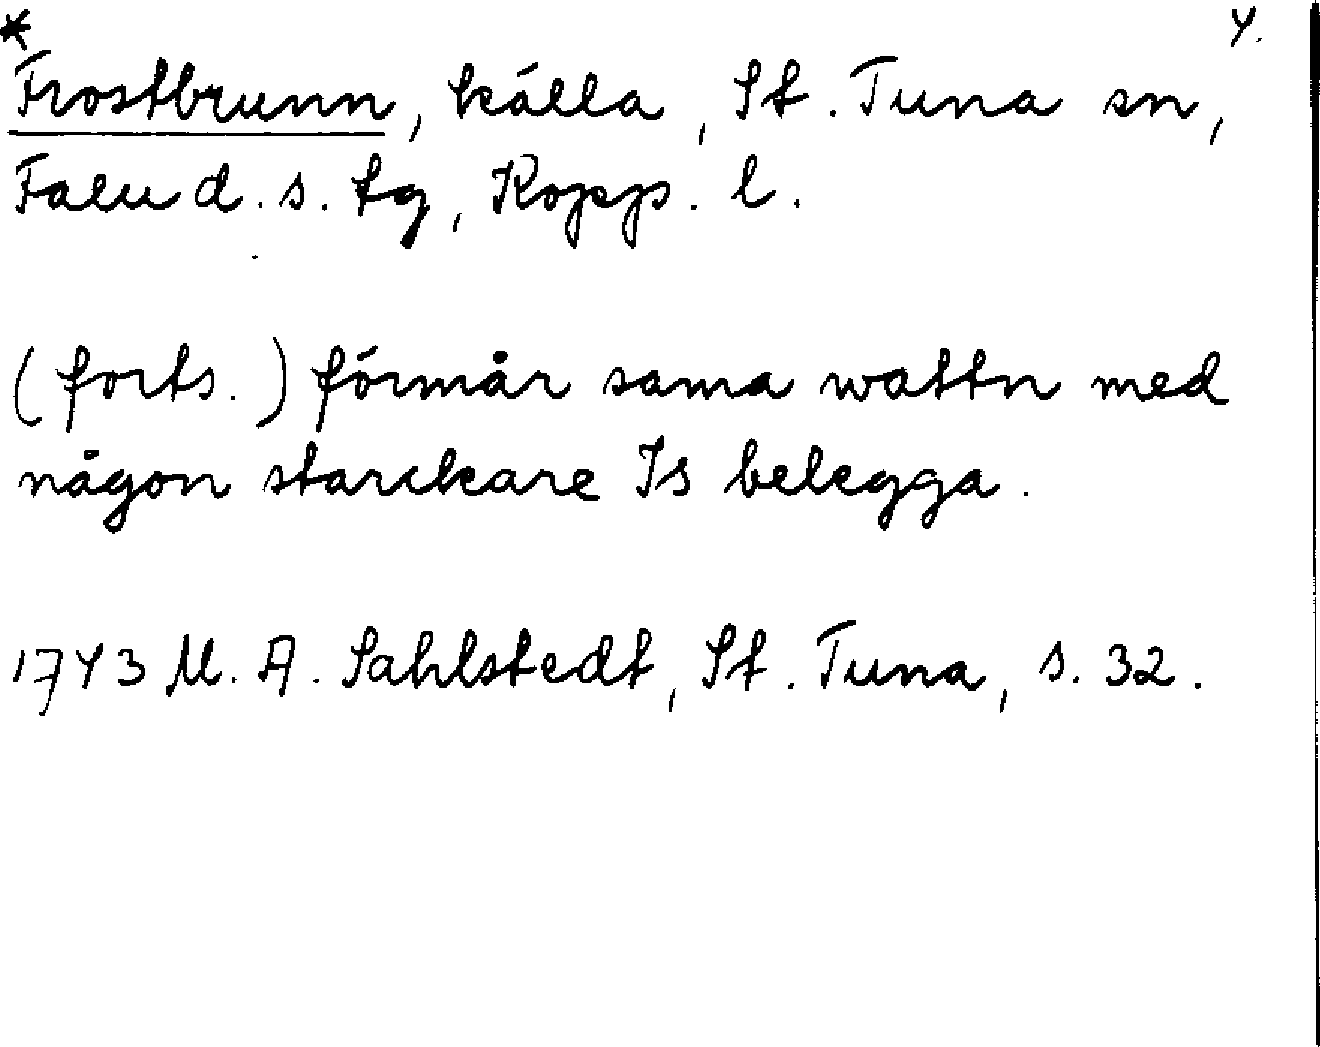 * 4.
Frostbrunn, källa, St. Tuna sn,
Falu d. s. tg, Kopp. l.
(forts.) förmår sama wattn med
någon starckare Is belegga.
1743 M. A. Sahlstedt, St. Tuna, s. 32.